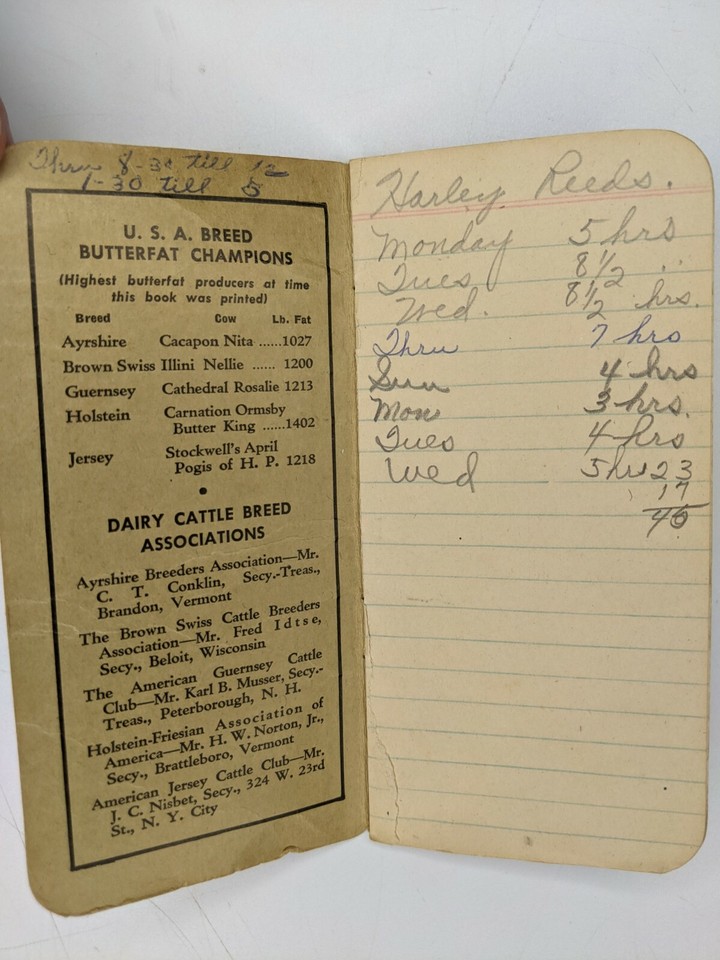 Thru 8-30 till 12
1-30 till 5
U. S. A. BREED
BUTTERFAT CHAMPIONS
(Highest butterfat producers at time
this book was printed)
Breed Cow Lb. Fat
Ayrshire Cacapon Nita ......1027
Brown Swiss Illini Nellie ...... 1200
Guernsey Cathedral Rosalie 1213
Holstein Carnation Ormsby
Butter King ......1402
Jersey Stockwell's April
Pogis of H. P. 1218
•
DAIRY CATTLE BREED
ASSOCIATIONS
Ayrshire Breeders Association—Mr.
C. T. Conklin, Secy.-Treas.,
Brandon, Vermont
The Brown Swiss Cattle Breeders
Association—Mr. Fred Idtse,
Secy., Beloit, Wisconsin
The American Guernsey Cattle
Club—Mr. Karl B. Musser, Secy.-
Treas., Peterborough, N. H.
Holstein-Friesian Association of
America—Mr. H. W. Norton, Jr.,
Secy., Brattleboro, Vermont
American Jersey Cattle Club—Mr.
J. C. Nisbet, Secy., 324 W. 23rd
St., N. Y. City
Harley Reeds.
Monday 5 hrs
Tues 8 1/2 ..
Wed. 8 1/2 hrs.
Thru 7 hrs
Sun 4 hrs
Mon 3 hrs.
Tues 4 hrs
Wed 5 hrs 23
17